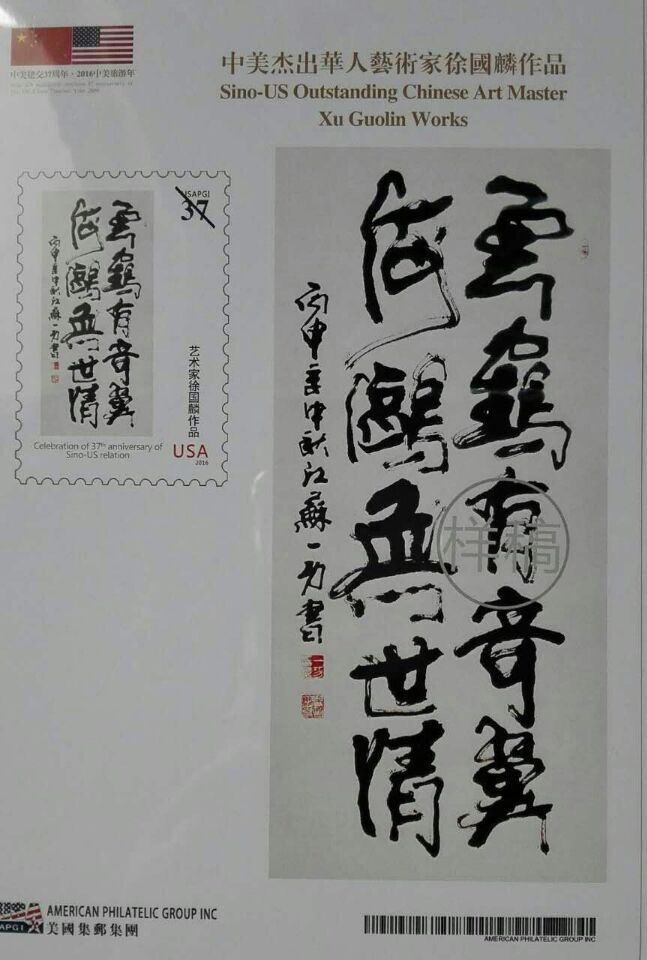 中美建交37周年·2016中美旅游年
中美杰出華人藝術家徐國麟作品
Sino-US Outstanding Chinese Art Master
Xu Guolin Works
USAPGI
37
雲鶴有奇翼
海鷗無世情
丙申年中秋江蘇一書
艺术家徐国麟作品
Celebration of 37th anniversary of
Sino-US relation
USA
2016
雲鶴有奇翼
海鷗無世情
丙申年中秋江蘇一書
样稿
APGI
AMERICAN PHILATELIC GROUP INC
美國集郵集團
AMERICAN PHILATELIC GROUP INC